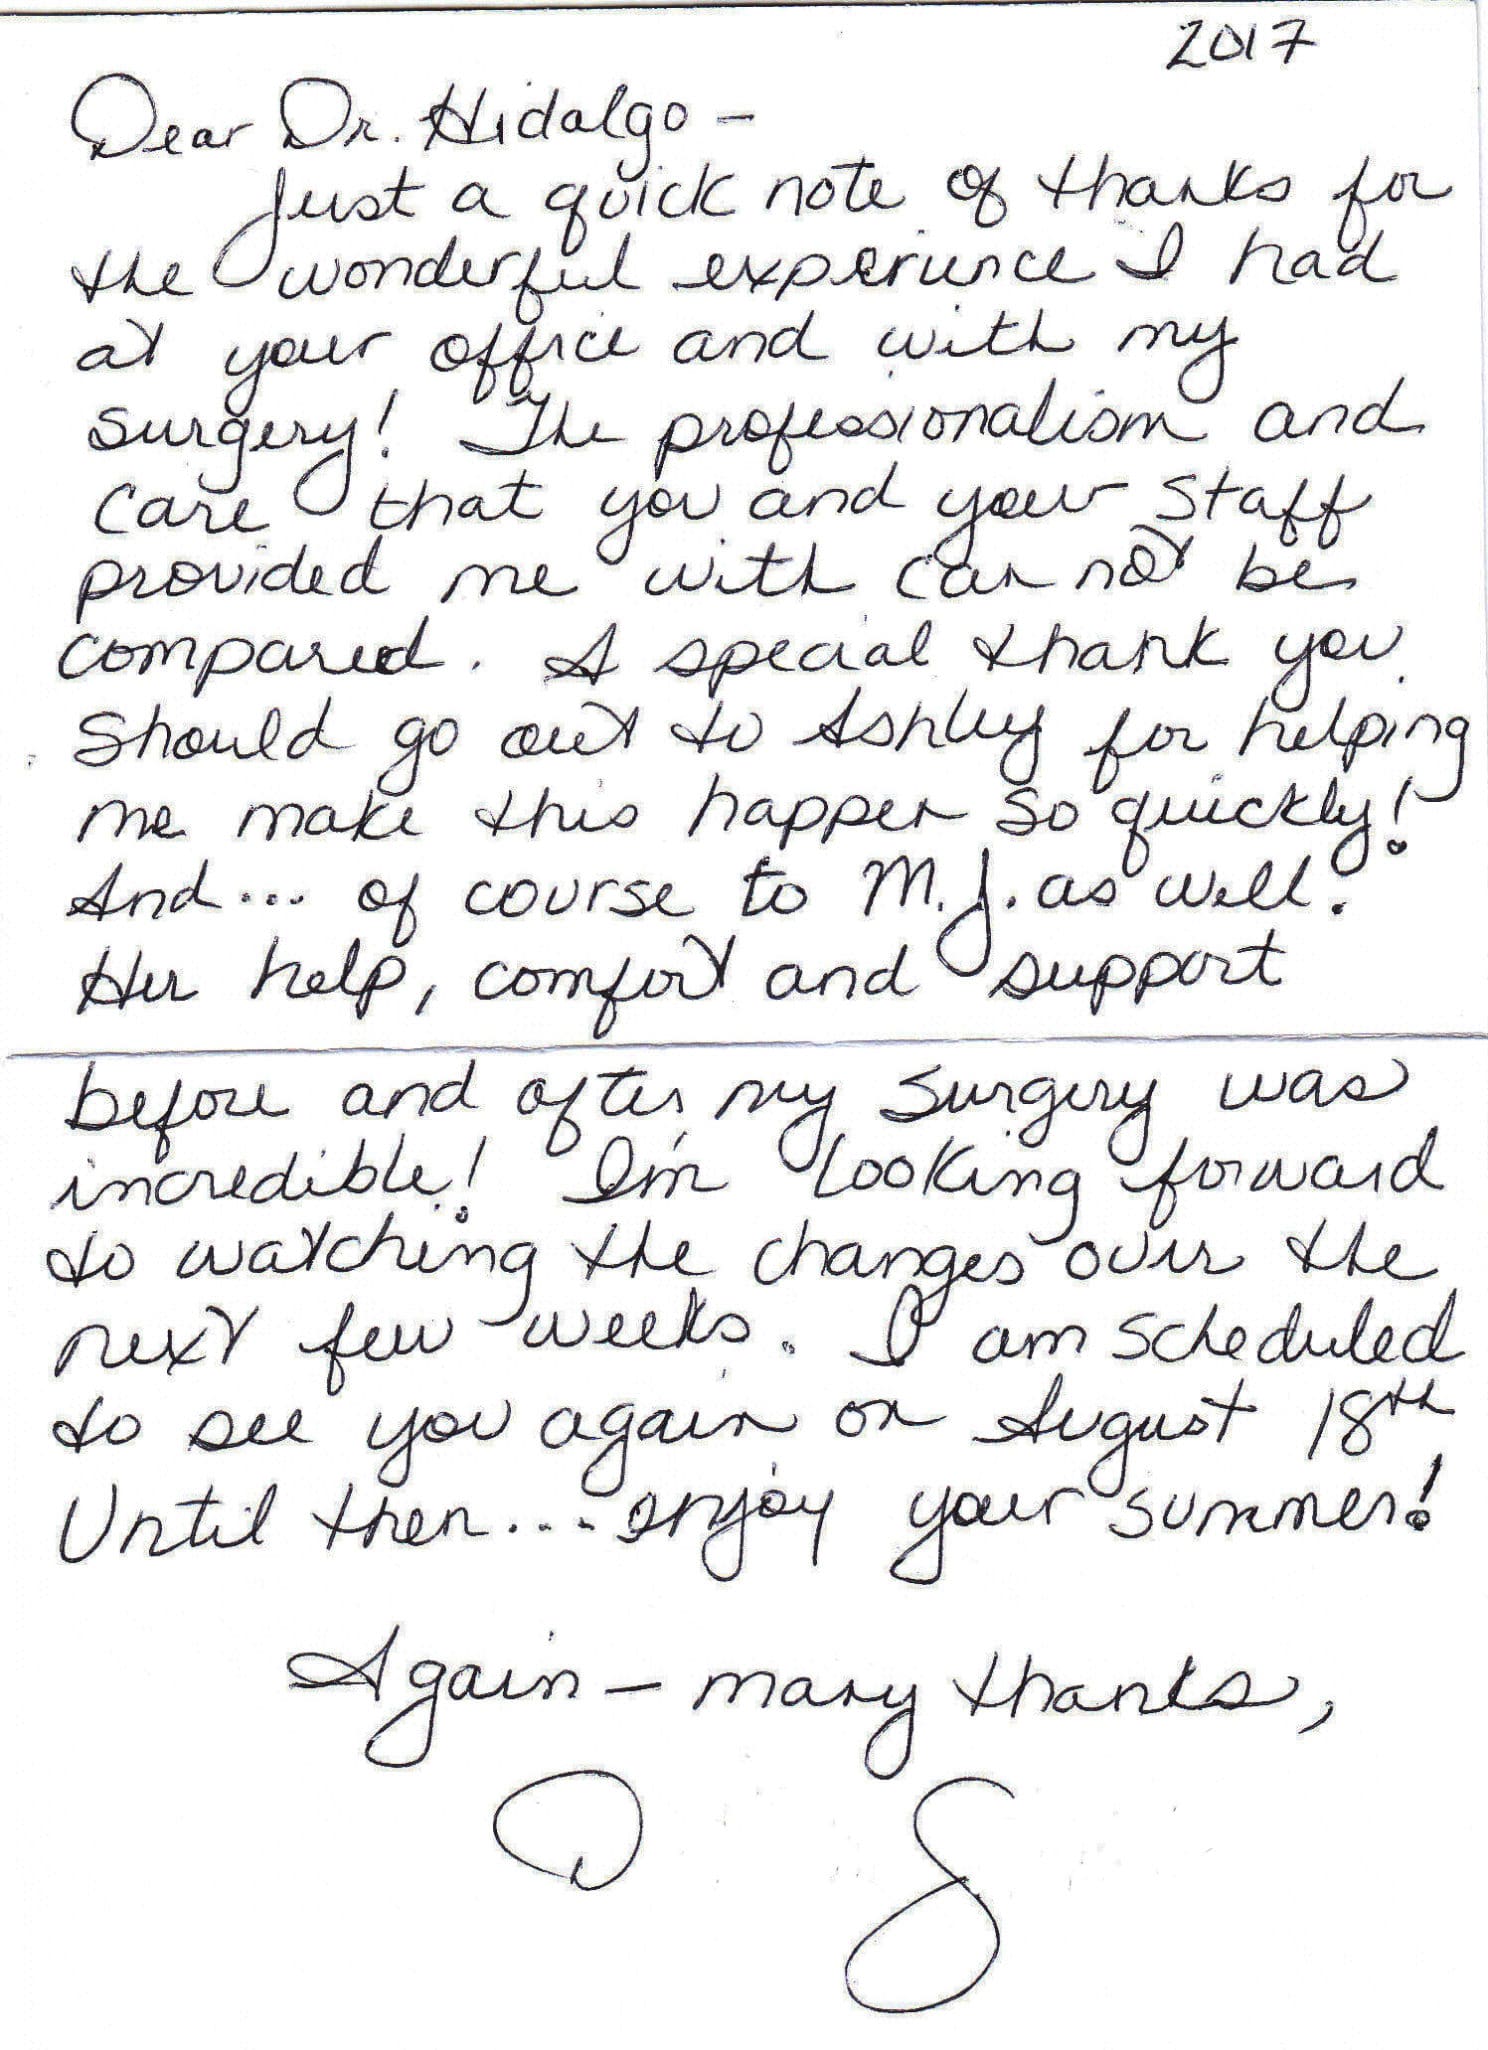 2017
Dear Dr. Hidalgo -
Just a quick note of thanks for
the wonderful experience I had
at your office and with my
surgery! The professionalism and
care that you and your staff
provided me with can not be
compared. A special thank you
should go out to Ashley for helping
me make this happen so quickly!
And... of course to M.J. as well.
Her help, comfort and support
before and after my surgery was
incredible! I'm looking forward
to watching the changes over the
next few weeks. I am scheduled
to see you again on August 18th
Until then... enjoy your summer!
Again - many thanks,
D S